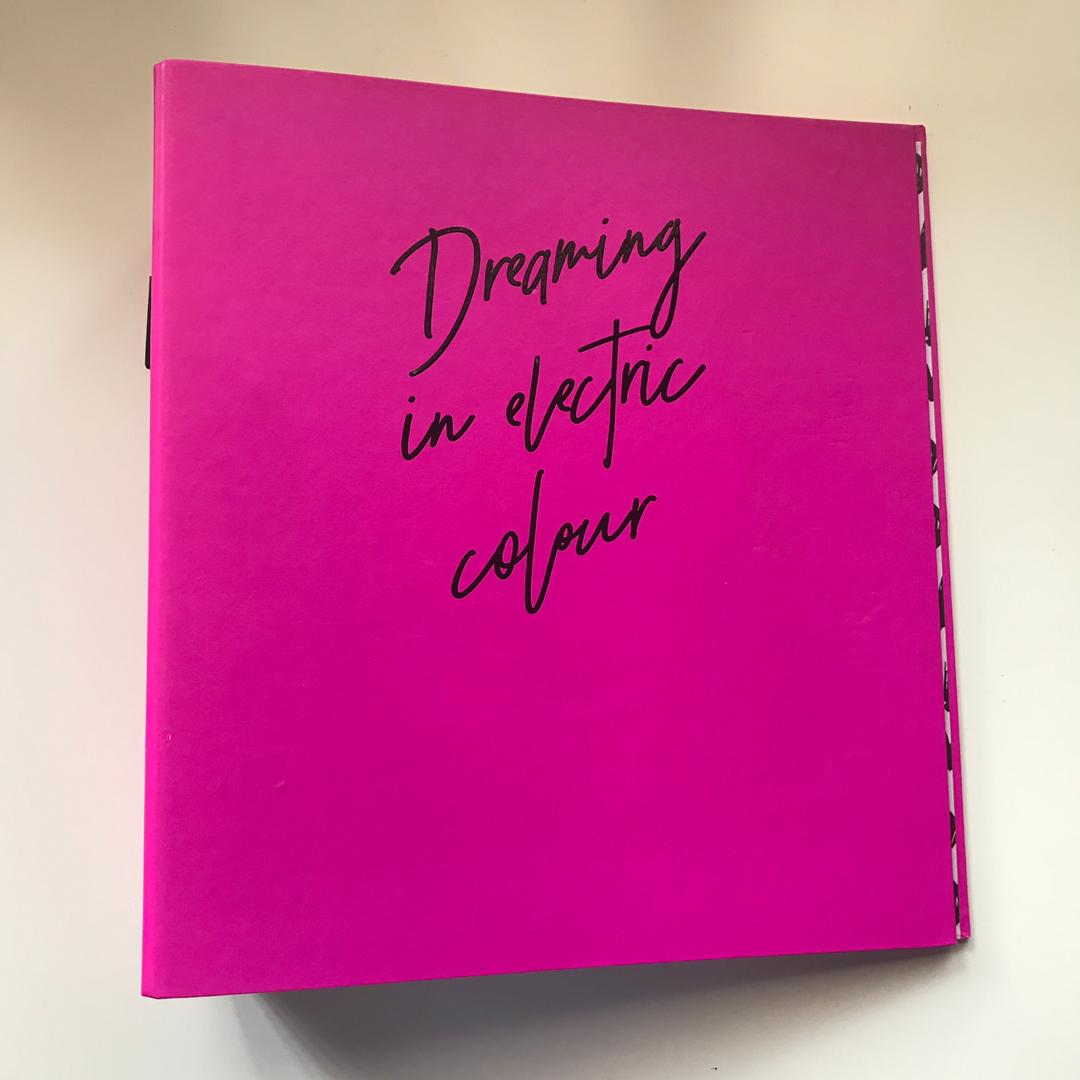 Dreaming
in electric
colour